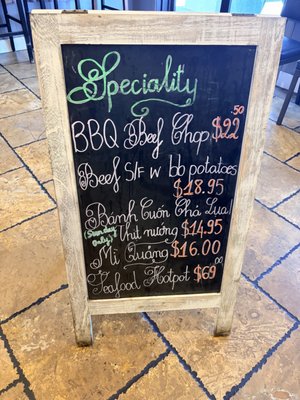 Speciality
BBQ Beef Chop $22.50
Beef S/F w bb potatoes
$18.95
Bánh Cuốn Chả Lụa
(Sunday Only) Thịt nướng $14.95
Mì Quảng $16.00
Seafood Hotpot $69.00